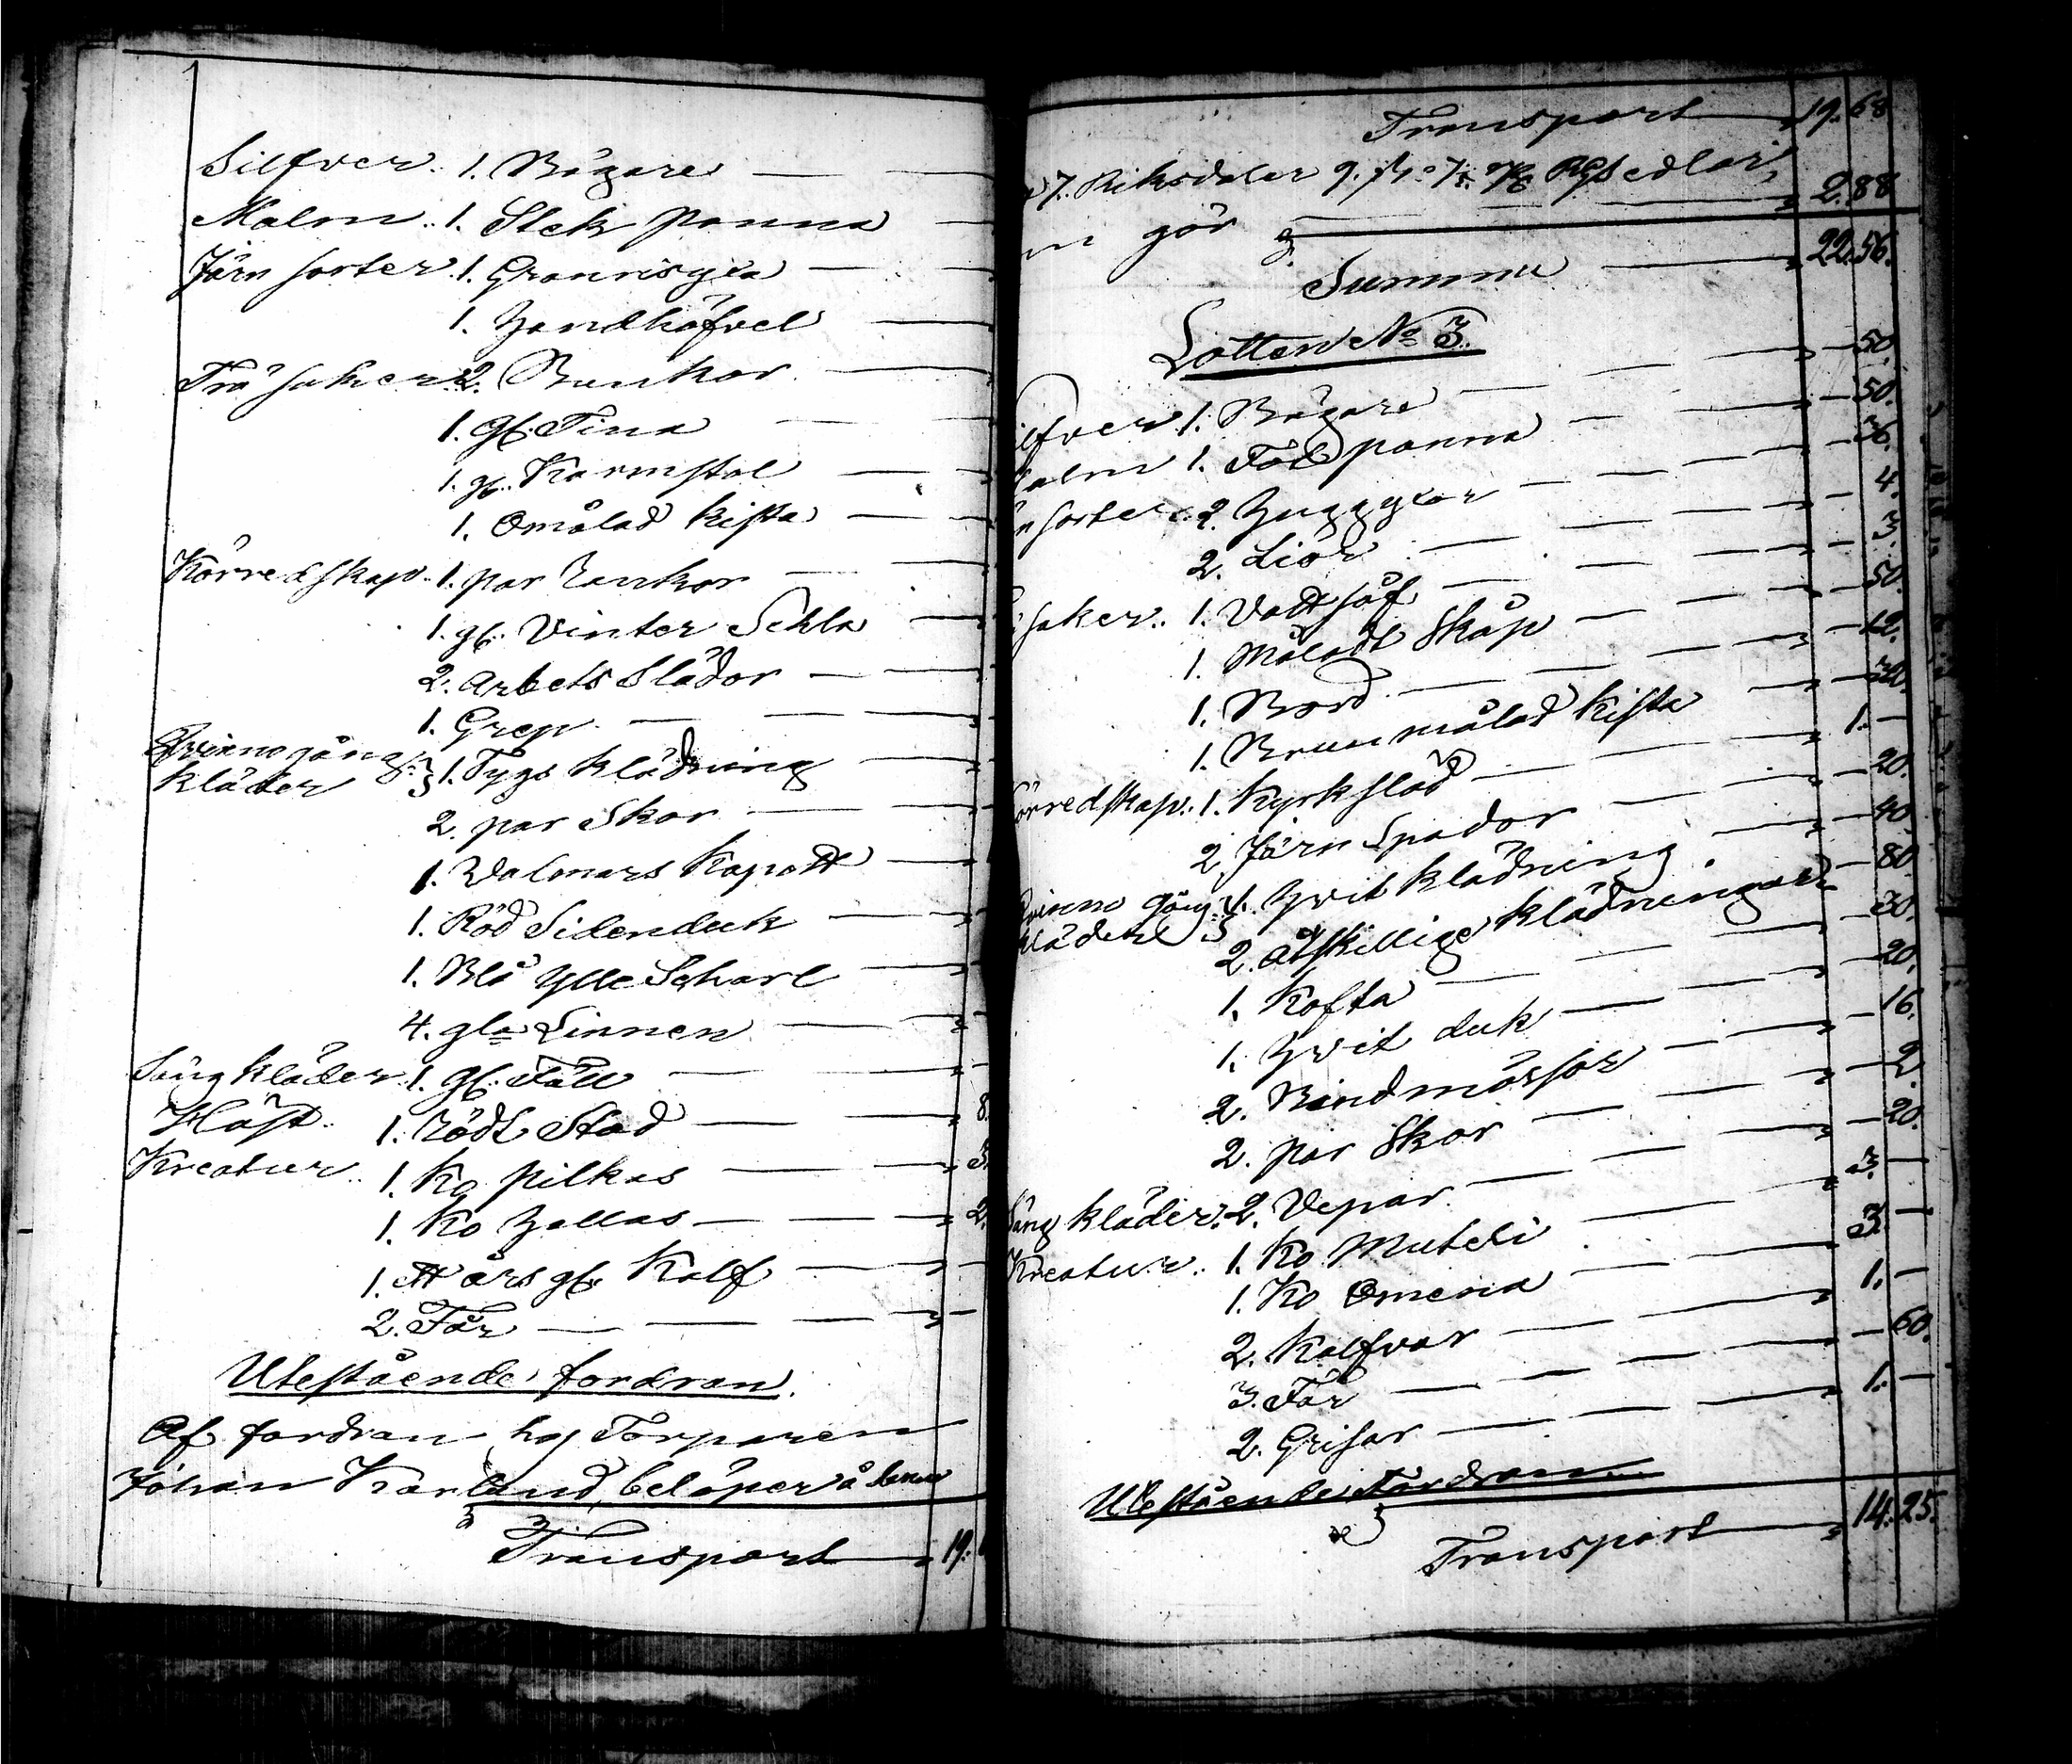 Silfver. 1. Bägare
Malm. 1. Stek panna
Järn sorter. 1. Granrisyxa
1. Handhöfvel
Trä saker. 2. Bunkar
1. gl. Tina
1. gl. Karmstol
1. Omålad kista
Körredskap. 1. par Lankor
1. gl. Vinter Sehla
2. Arbets Slädor
1. Grep
Qvinno gång kläder 1. Tygs klädning
2. par Skor
1. Valmars Kapott
1. Röd Sidenduk
1. Blå Ylle Scharl
4. gla Linnen
Säng kläder. 1. gl. Fäll
Häst. 1. Rödt Stod 8.
Kreatur. 1. Ko Pilkas 3.
1. Ko Hallas 2.
1. Ett års gl. Kalf
2. Får
Utestående fordran.
Af fordran hos Torparen
Johan Karlund, belöper å denna
Transport 19.
Transport 19. 68
7. Riksdaler 9. Rgs edlar,
gör 2. 88
Summa 22. 56.
Lotten No 3.
ilfver 1. Bägare 50.
alm 1. Föld panna 50.
n sorter. 2. Huggyxor 36.
2. Liör 4.
saker. 1. Vatt så 3.
1. Måladt Skåp 50.
1. Bord 12.
1. Brun målad kista 30.
örredskap. 1. Kyrksläd 1.
2. Järn Spador 20.
vinno gång kläder 1. Hvit klädning 40.
2. Åtskillige klädningar 80.
1. Kofta 30.
1. Hvit duk 20.
2. Bindmössor 16.
2. par Skor 2.
Säng kläder. 2. Vepar 20.
Kreatur. 1. Ko Muteli 3.
1. Ko Omena 3.
2. Kalfvar 1.
3. Får 60.
2. Grisar 1.
Utestående Fordran
Transport 14. 25.